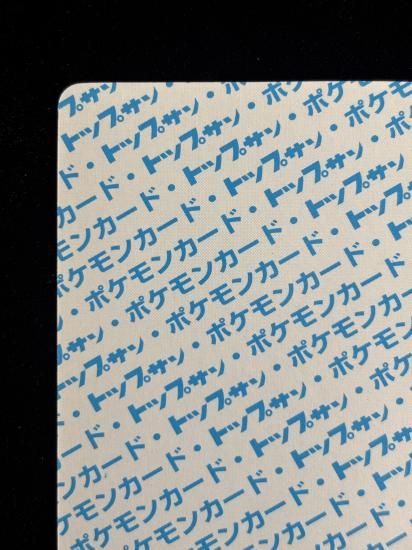 プサン
トップサン・
ド・トップサン・ポケ
カード・トップサン・ポケモン
モンカード・トップサン・ポケ
ポケモンカード・トップサン
・ポケモンカード・トップ
サン・ポケモンカード・
トップサン・ポケモンカード
トップサン・ポケモンカード
ド・トップサン・ポケモン
カード・トップサン・ポケ
モンカード・トップサン
ケモンカード・トップサン
ポケモンカード・トップ